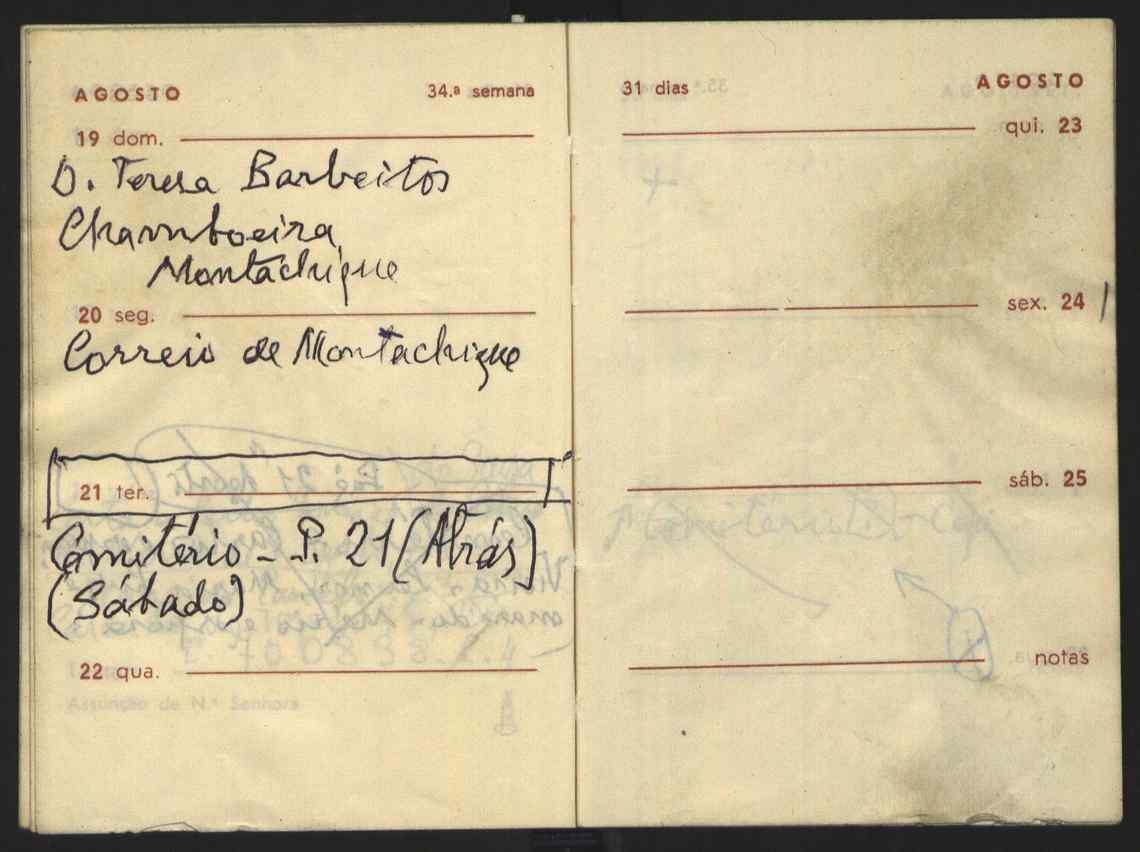 AGOSTO 34.ª semana
19 dom.
D. Teresa Barbeitos
Chamboeira
Montachique
20 seg.
Correio de Montachique
21 ter.
Comitério - P. 21 (Atrás)
(Sábado)
22 qua.
Assunção de N.ª Senhora
31 dias AGOSTO
qui. 23
sex. 24
sáb. 25
notas